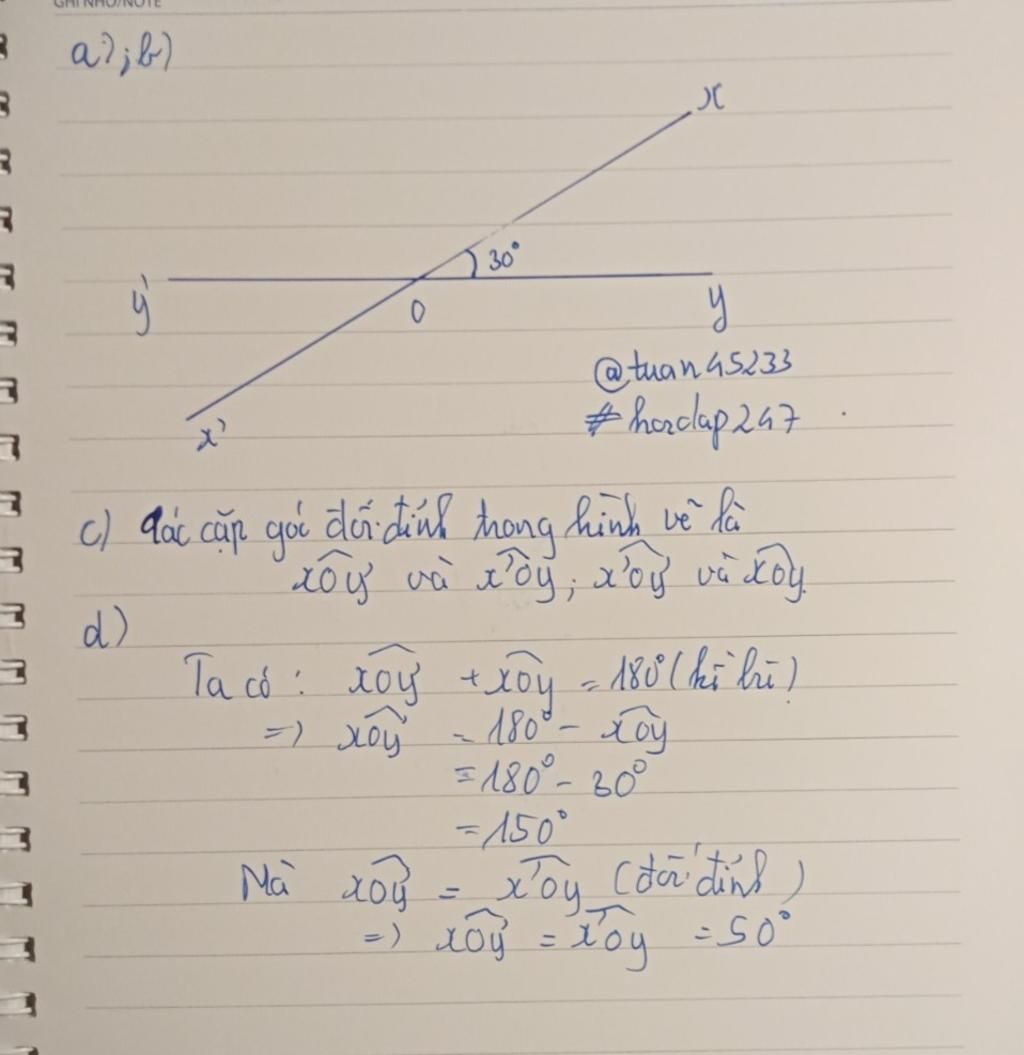 GHI NHỚ/NOTE
a); b)
x
30°
y'
O
y
@tuan45233
#hoctap247
x'
c) Các cặp góc đối đỉnh trong hình vẽ là
xOy' và x'Oy; x'Oy' và xOy.
d)
Ta có: xOy' + xOy = 180° (kề bù)
=> xOy' = 180° - xOy
= 180° - 30°
= 150°
Mà xOy' = x'Oy (đối đỉnh)
=> xOy' = x'Oy = 50°